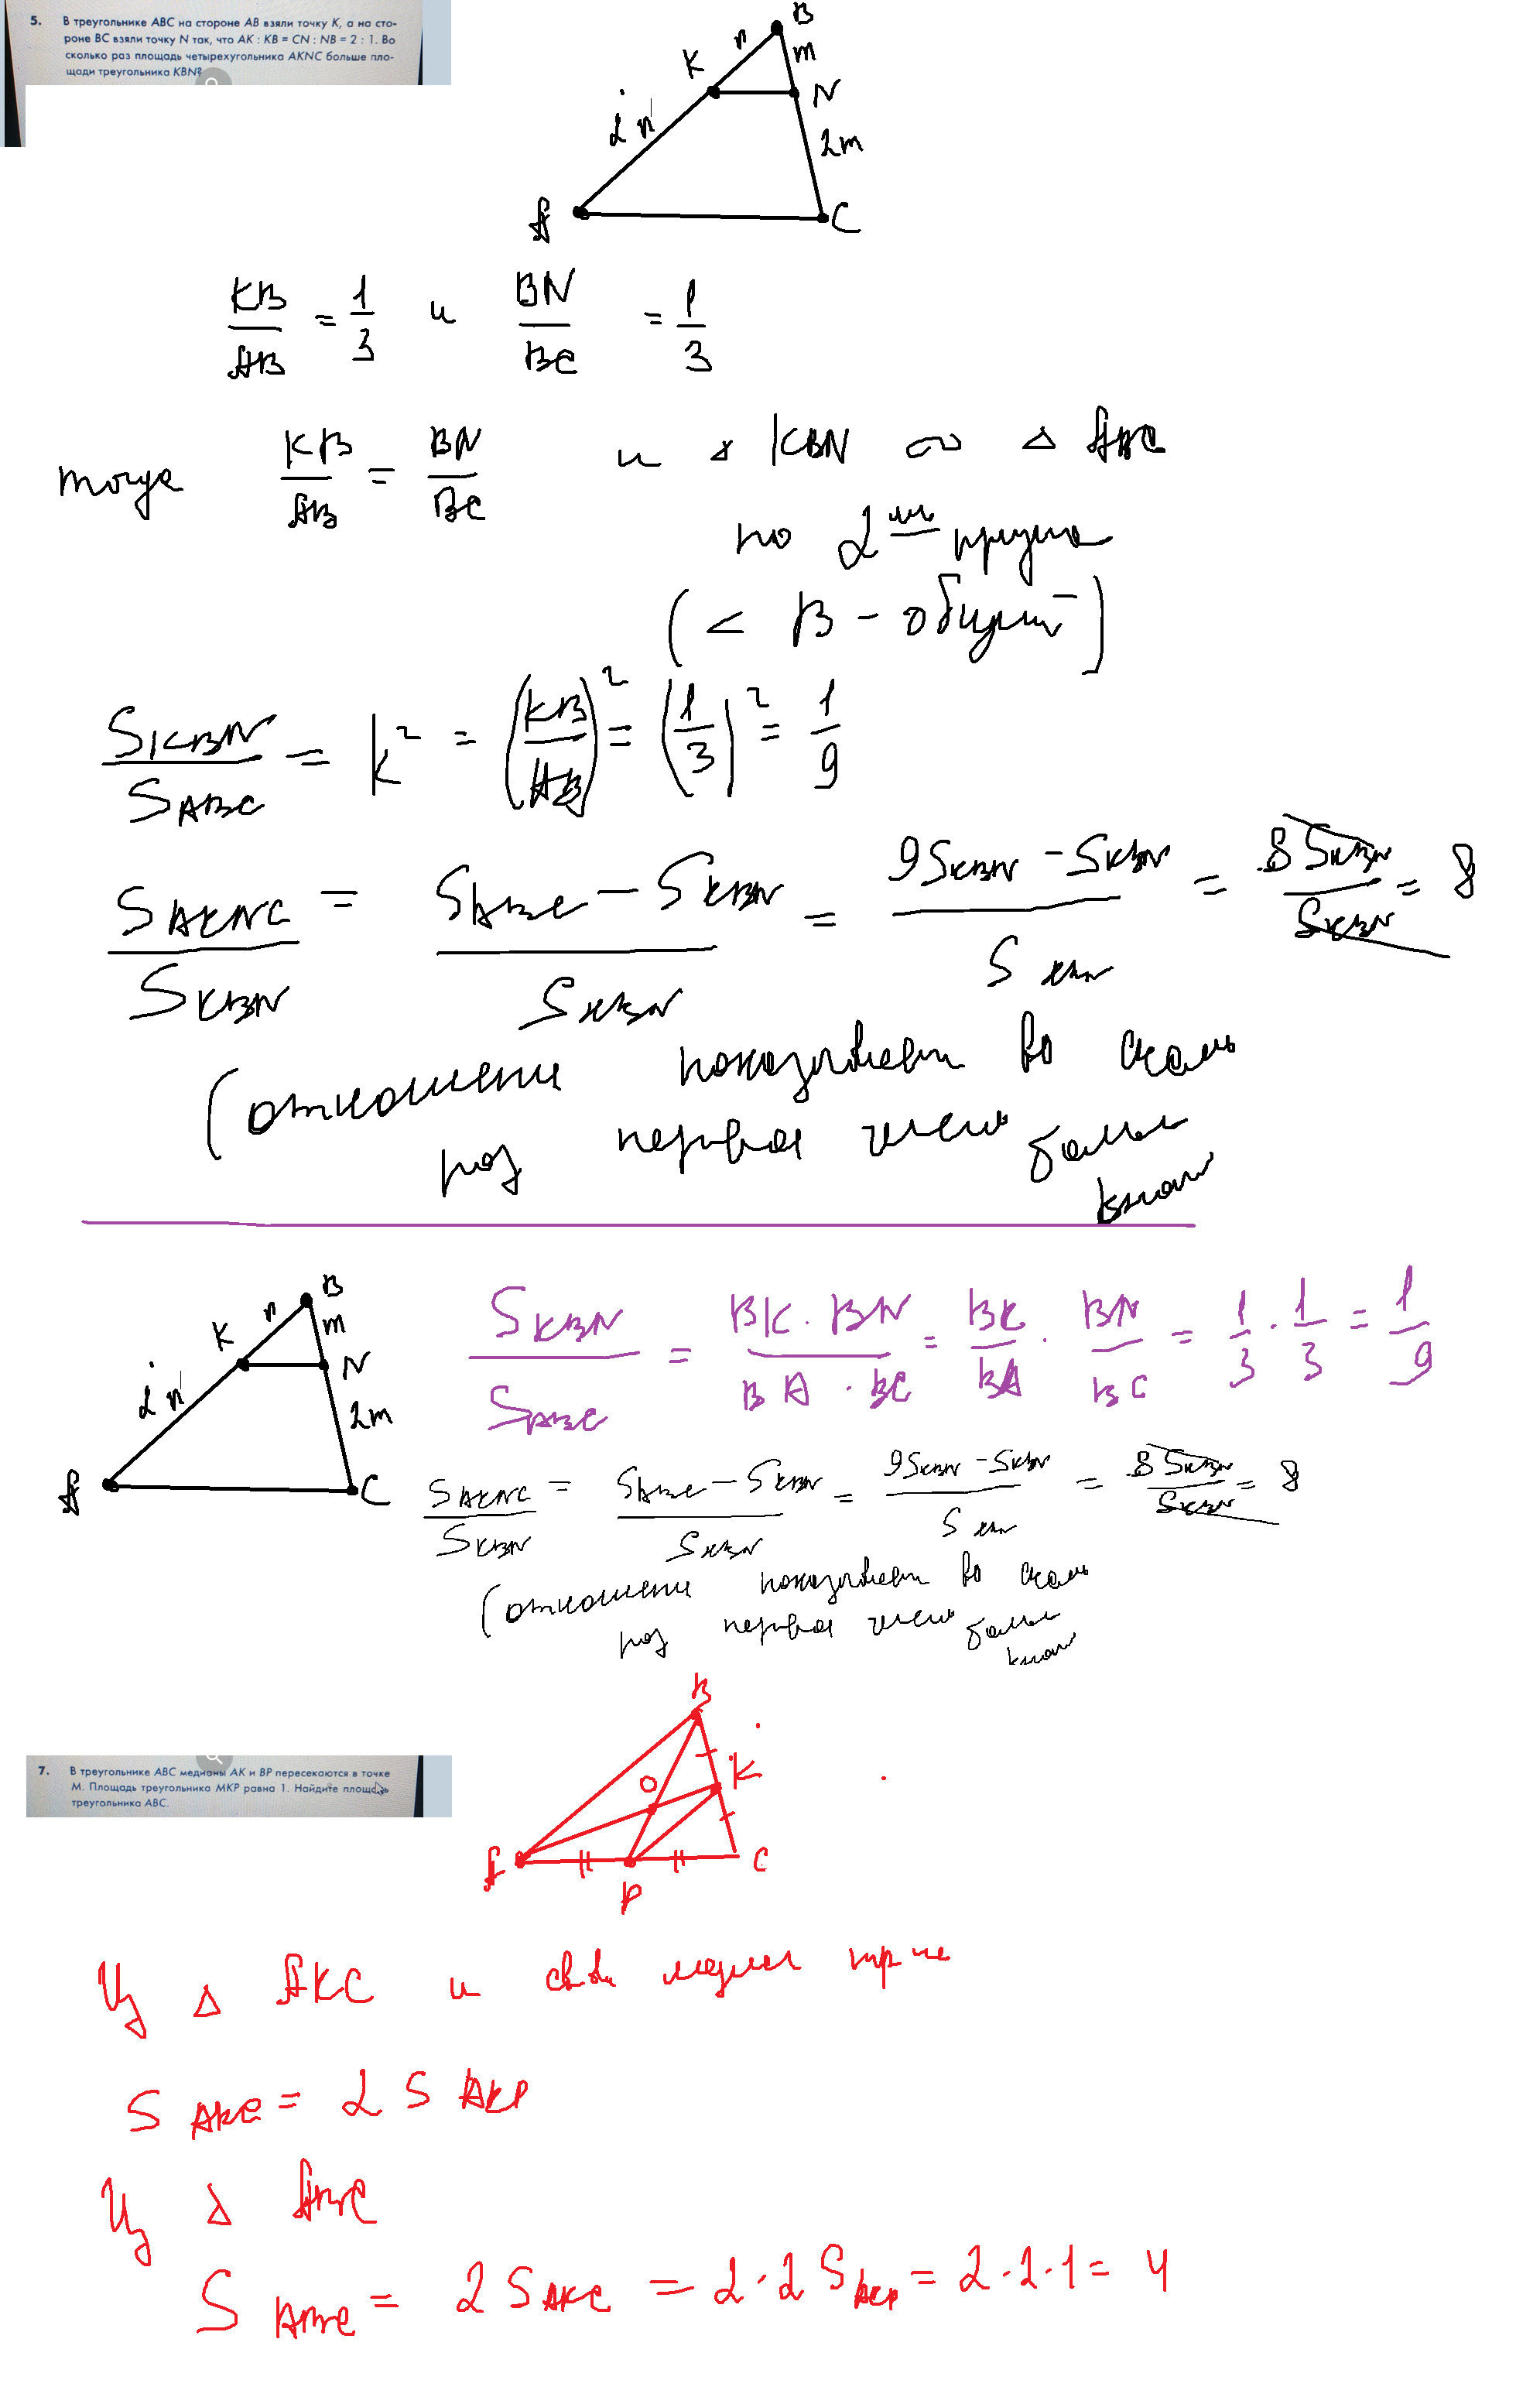 5. В треугольнике ABC на стороне AB взяли точку K, а на сто-
роне BC взяли точку N так, что AK : KB = CN : NB = 2 : 1. Во
сколько раз площадь четырехугольника AKNC больше пло-
щади треугольника KBN?
B
n
m
K
N
2n
2m
A
C
KB/AB = 1/3 и BN/BC = 1/3
тогда KB/AB = BN/BC и Δ KBN ∾ Δ ABC
по 2
(< B - общий)
S KBN / S ABC = k² = (KB/AB)² = (1/3)² = 1/9
S AKNC / S KBN = (S ABC - S KBN) / S KBN = (9 S KBN - S KBN) / S KBN = 8 S KBN / S KBN = 8
(отношение показывает во сколь
раз первое число больше
B
n
m
K
N
2n
2m
A
C
S KBN / S ABC = BK · BN / BA · BC = BK/BA · BN/BC = 1/3 · 1/3 = 1/9
S AKNC / S KBN = (S ABC - S KBN) / S KBN = (9 S KBN - S KBN) / S KBN = 8 S KBN / S KBN = 8
(отношение показывает во сколь
раз первое число больше
7. В треугольнике ABC медианы AK и BP пересекаются в точке
M. Площадь треугольника MKP равна 1. Найдите площадь
треугольника ABC.
B
O
K
A
C
P
Из Δ AKC и
S AKC = 2 S AKP
Из Δ ABC
S ABC = 2 S AKC = 2 · 2 S AKP = 2 · 2 · 1 = 4